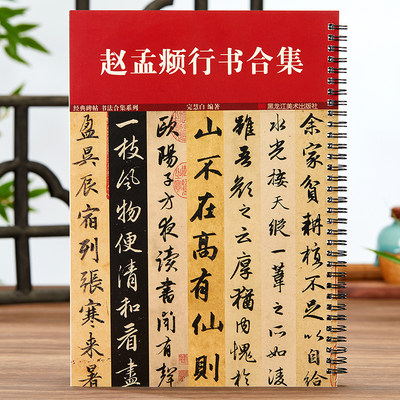 赵孟頫行书合集
经典碑帖 书法合集系列
完慧白 编著
黑龙江美术出版社
余家貧耕植不足以自給
水光接天縱一葦之所如凌
雖吾顏之云厚猶內愧於
山不在高有仙則
歐陽子方夜讀書聞有聲
一枝風物便清和看盡
盈昃辰宿列張寒来暑